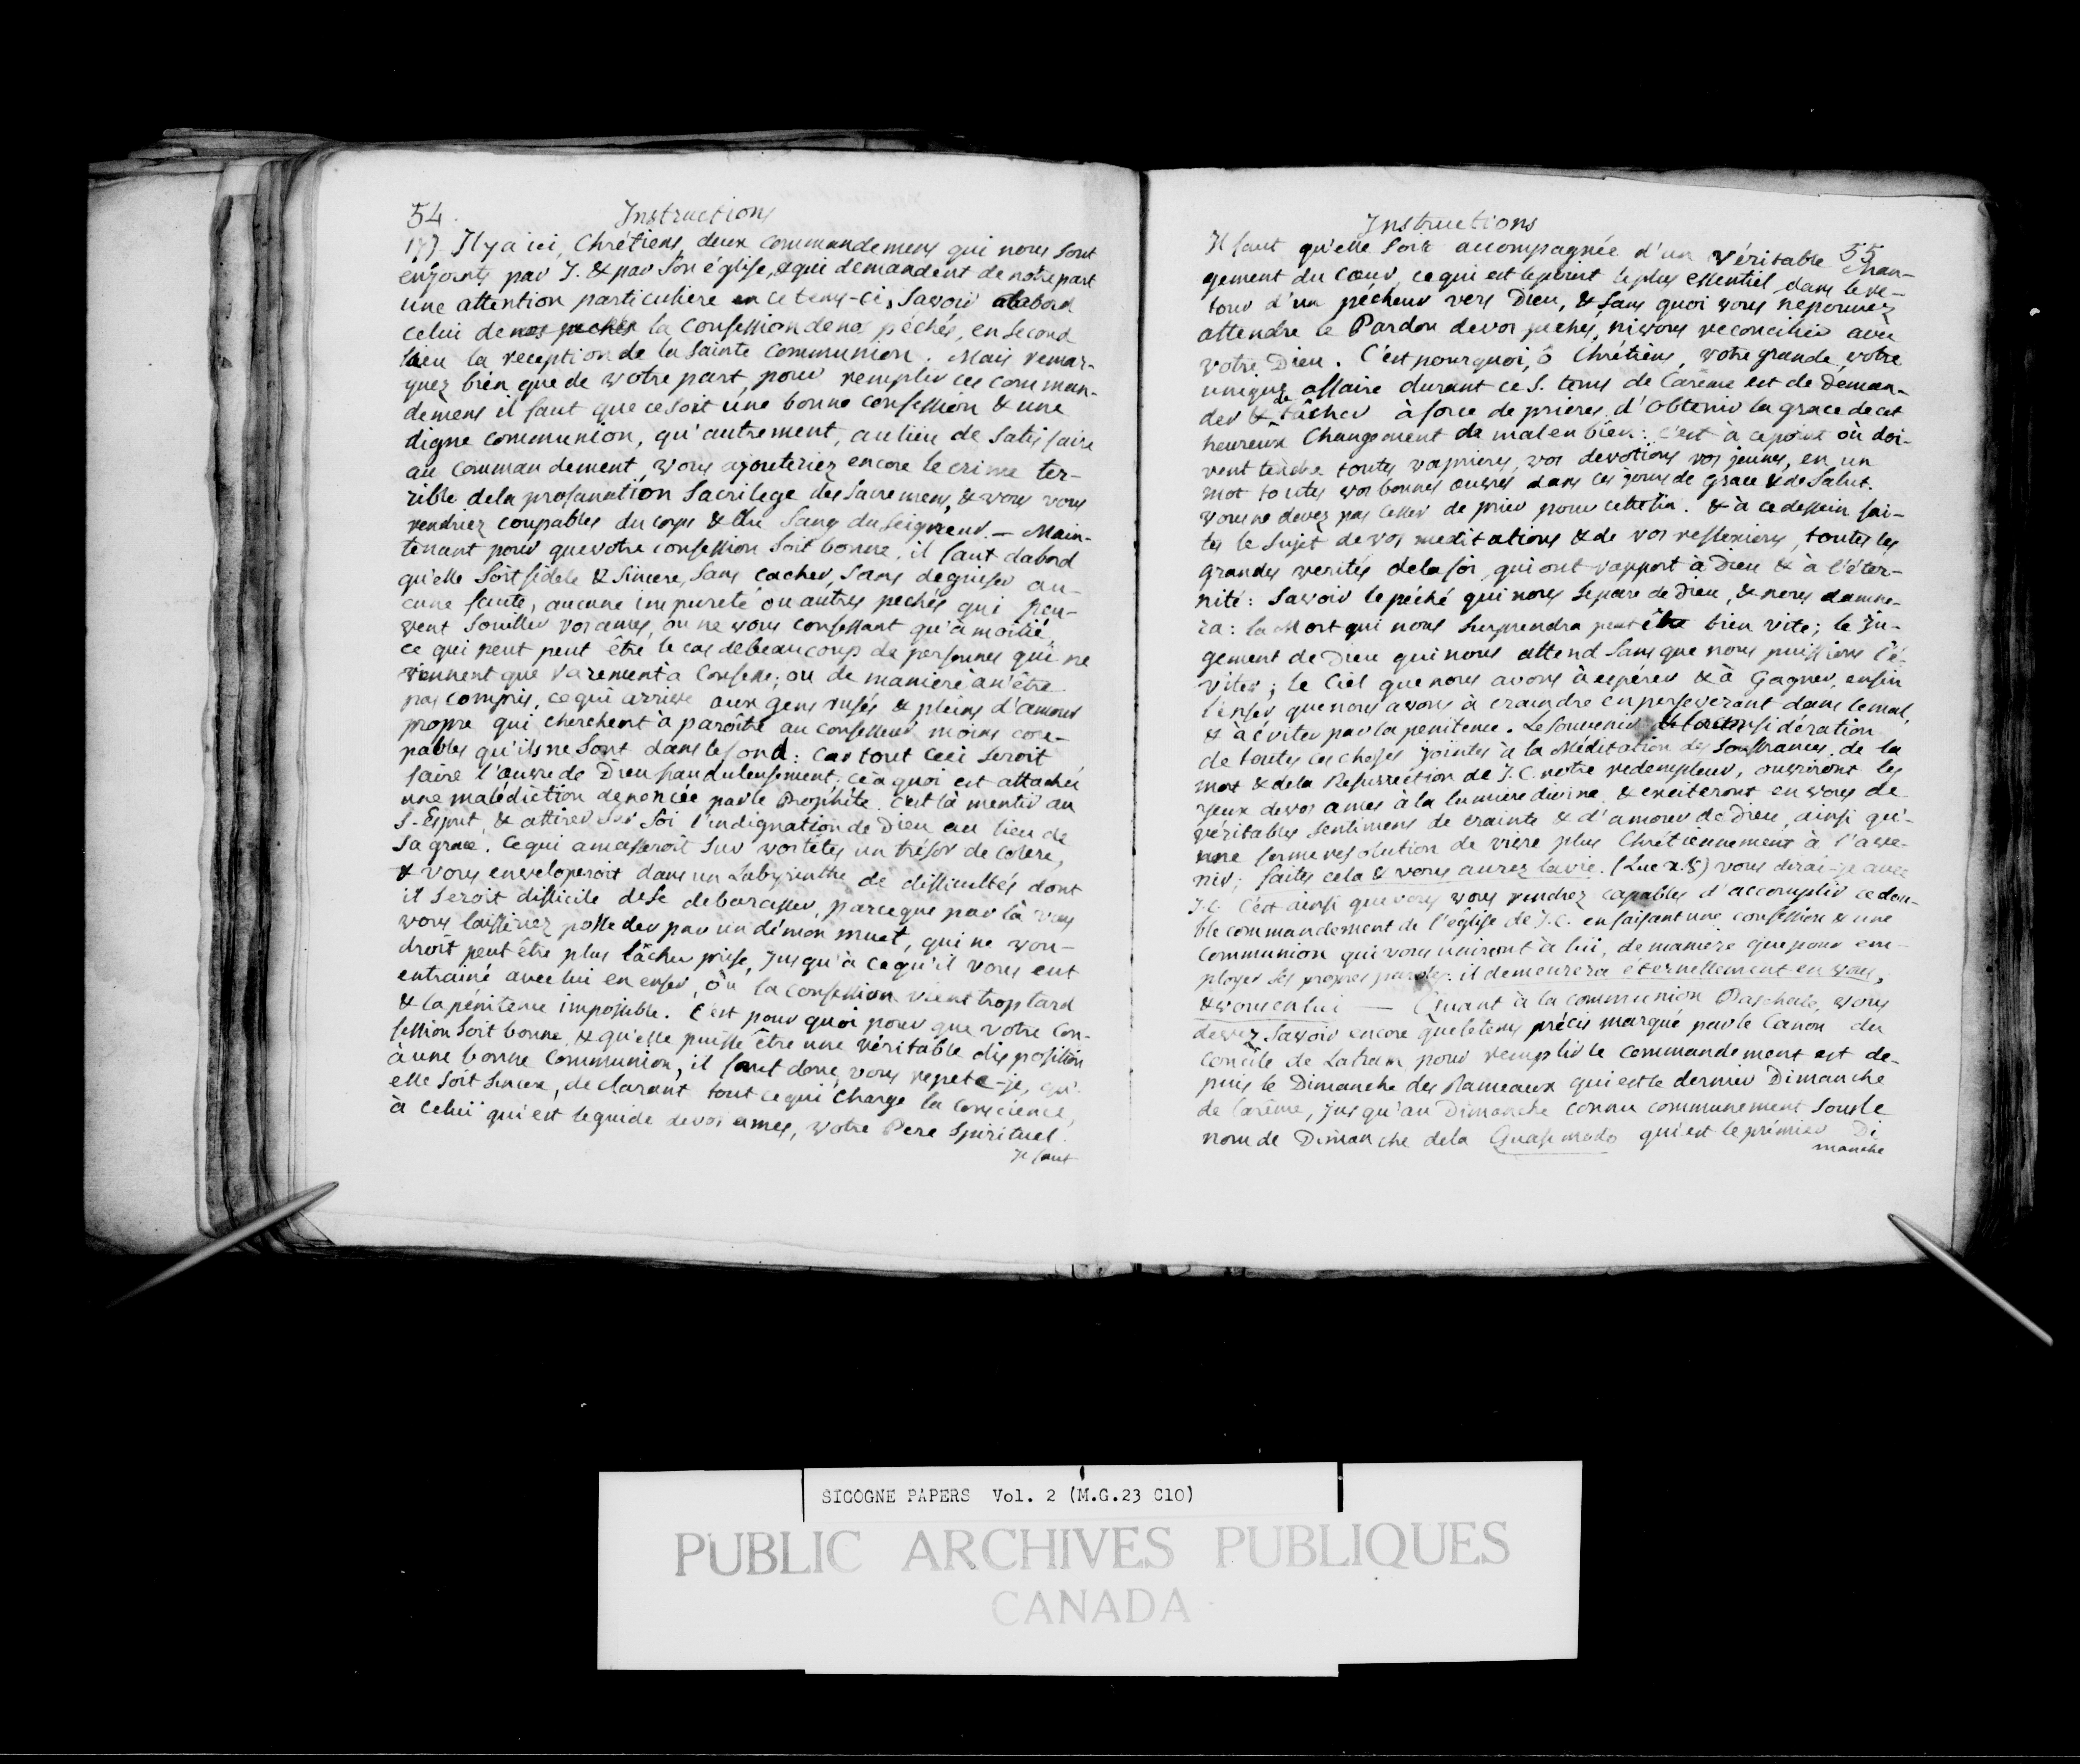 54.
Instructions
177. Il y a ici, Chrétiens, deux commandemens qui nous sont
enjoints par J. & par son église, & qui demandent de notre part
une attention particuliere en ce tems-ci, Savoir dabord
celui de nos pechés la Confession de nos péchés, en second
lieu la reception de la sainte Communion. Mais remar-
quez bien que de votre part, pour remplir ces comman-
demens il faut que ce soit une bonne confession & une
digne communion, qu'autrement, au lieu de satisfaire
au commandement, vous ajouteriez encore le crime ter-
rible dela profanation sacrilege des sacremens, & vous vous
rendriez coupables du corps & du Sang du Seigneur. — Main-
tenant pour que votre confession soit bonne, il faut dabord
qu'elle soit fidele & sincere, sans cacher, sans deguiser au-
cune faute, aucune impureté ou autres pechés qui peu-
vent souiller vos ames, ou ne vous confessant qu'à moitié,
ce qui peut peut être le cas de beaucoup de personnes qui ne
viennent que rarement à Confesse; ou de maniere à n'être
pas compris, ce qui arrive aux gens rusés & pleins d'amour
propre qui cherchent à paroître au confesseur moins cou-
pables qu'ils ne sont dans le fond: Car tout ceci seroit
faire l'œuvre de Dieu frauduleusement, à quoi est attachée
une malédiction denoncée par le Prophéte. C'est là mentir au
S-Esprit, & attirer sur soi l'indignation de Dieu au lieu de
sa grace. Ce qui amasseroit sur vos têtes un trésor de colere,
& vous enveloperoit dans un Labyrinthe de difficultés dont
il seroit difficile de se debarasser, parceque par là vous
vous laisseriez posseder par un démon muet, qui ne vou-
droit peut être plus lâcher prise, jusqu'à ce qu'il vous eut
entrainé avec lui en enfer, où la confession vient trop tard
& la pénitence impossible. C'est pourquoi pour que votre Con-
fession soit bonne, & qu'elle puisse être une véritable disposition
à une bonne Communion, il faut donc, vous repete-je, qu'
elle soit sincere, declarant tout ce qui charge la conscience,
à celui qui est le guide de vos ames, votre Pere Spirituel.
Il faut
Instructions
55
Il faut qu'elle soit accompagnée d'un véritable chan-
gement du cœur, ce qui est le point le plus essentiel dans le re-
tour d'un pécheur vers Dieu, & sans quoi vous ne pouvez
attendre le Pardon de vos pechés, ni vous reconcilier avec
votre Dieu. C'est pourquoi, ô Chrétiens, votre grande, votre
unique affaire durant ce S. tems de Carême est de deman-
der & de tâcher à force de prieres d'obtenir la grace de cet
heureux changement de mal en bien: c'est à ce point où doi-
vent tendre toutes vos prieres, vos devotions vos jeunes, en un
mot toutes vos bonnes œuvres dans ces jours de grace & de Salut.
vous ne devez pas cesser de prier pour cette fin. & à ce dessein fai-
tes le sujet de vos meditations & de vos reflexions, toutes les
grandes verités dela foi, qui ont rapport à Dieu & à l'éter-
nité: Savoir le péché qui nous separe de Dieu, & nous damne-
ra: la Mort qui nous surprendra peut être bien vite; le Ju-
gement de Dieu qui nous attend sans que nous puissions l'é-
viter; le Ciel que nous avons à espérer & à Gagner, enfin
l'enfer que nous avons à craindre en perseverant dans le mal,
& à éviter par la penitence. Le souvenir & la consideration
de toutes ces choses jointes à la Méditation des souffrances, de la
mort & dela Resurrection de J.C. notre redempteur, ouvriront les
yeux de vos ames à la lumiere divine & exciteront en vous de
véritables sentimens de crainte & d'amour de Dieu, ainsi qu'-
une ferme resolution de vivre plus Chrétiennement à l'ave-
nir; faites cela & vous aurez la vie. (Luc x. 8) vous dirai-je avec
J.C. C'est ainsi que vous vous rendrez capables d'accomplir ce dou-
ble commandement de l'église de J.C. en faisant une confession & une
communion qui vous uniront à lui, de maniere que pour em-
ployer ses propres paroles. il demeurera éternellement en vous,
& vous en lui — Quant à la communion Paschale, vous
devez savoir encore que le tems précis marqué par le Canon du
Concile de Latran pour remplir le commandement est de-
puis le Dimanche des Rameaux qui est le dernier Dimanche
de Carême, jusqu'au Dimanche connu communement sous le
nom de Dimanche dela Quasimodo qui est le prémier Di
manche
SIGOGNE PAPERS Vol. 2 (M.G.23 C10)
PUBLIC ARCHIVES PUBLIQUES
CANADA